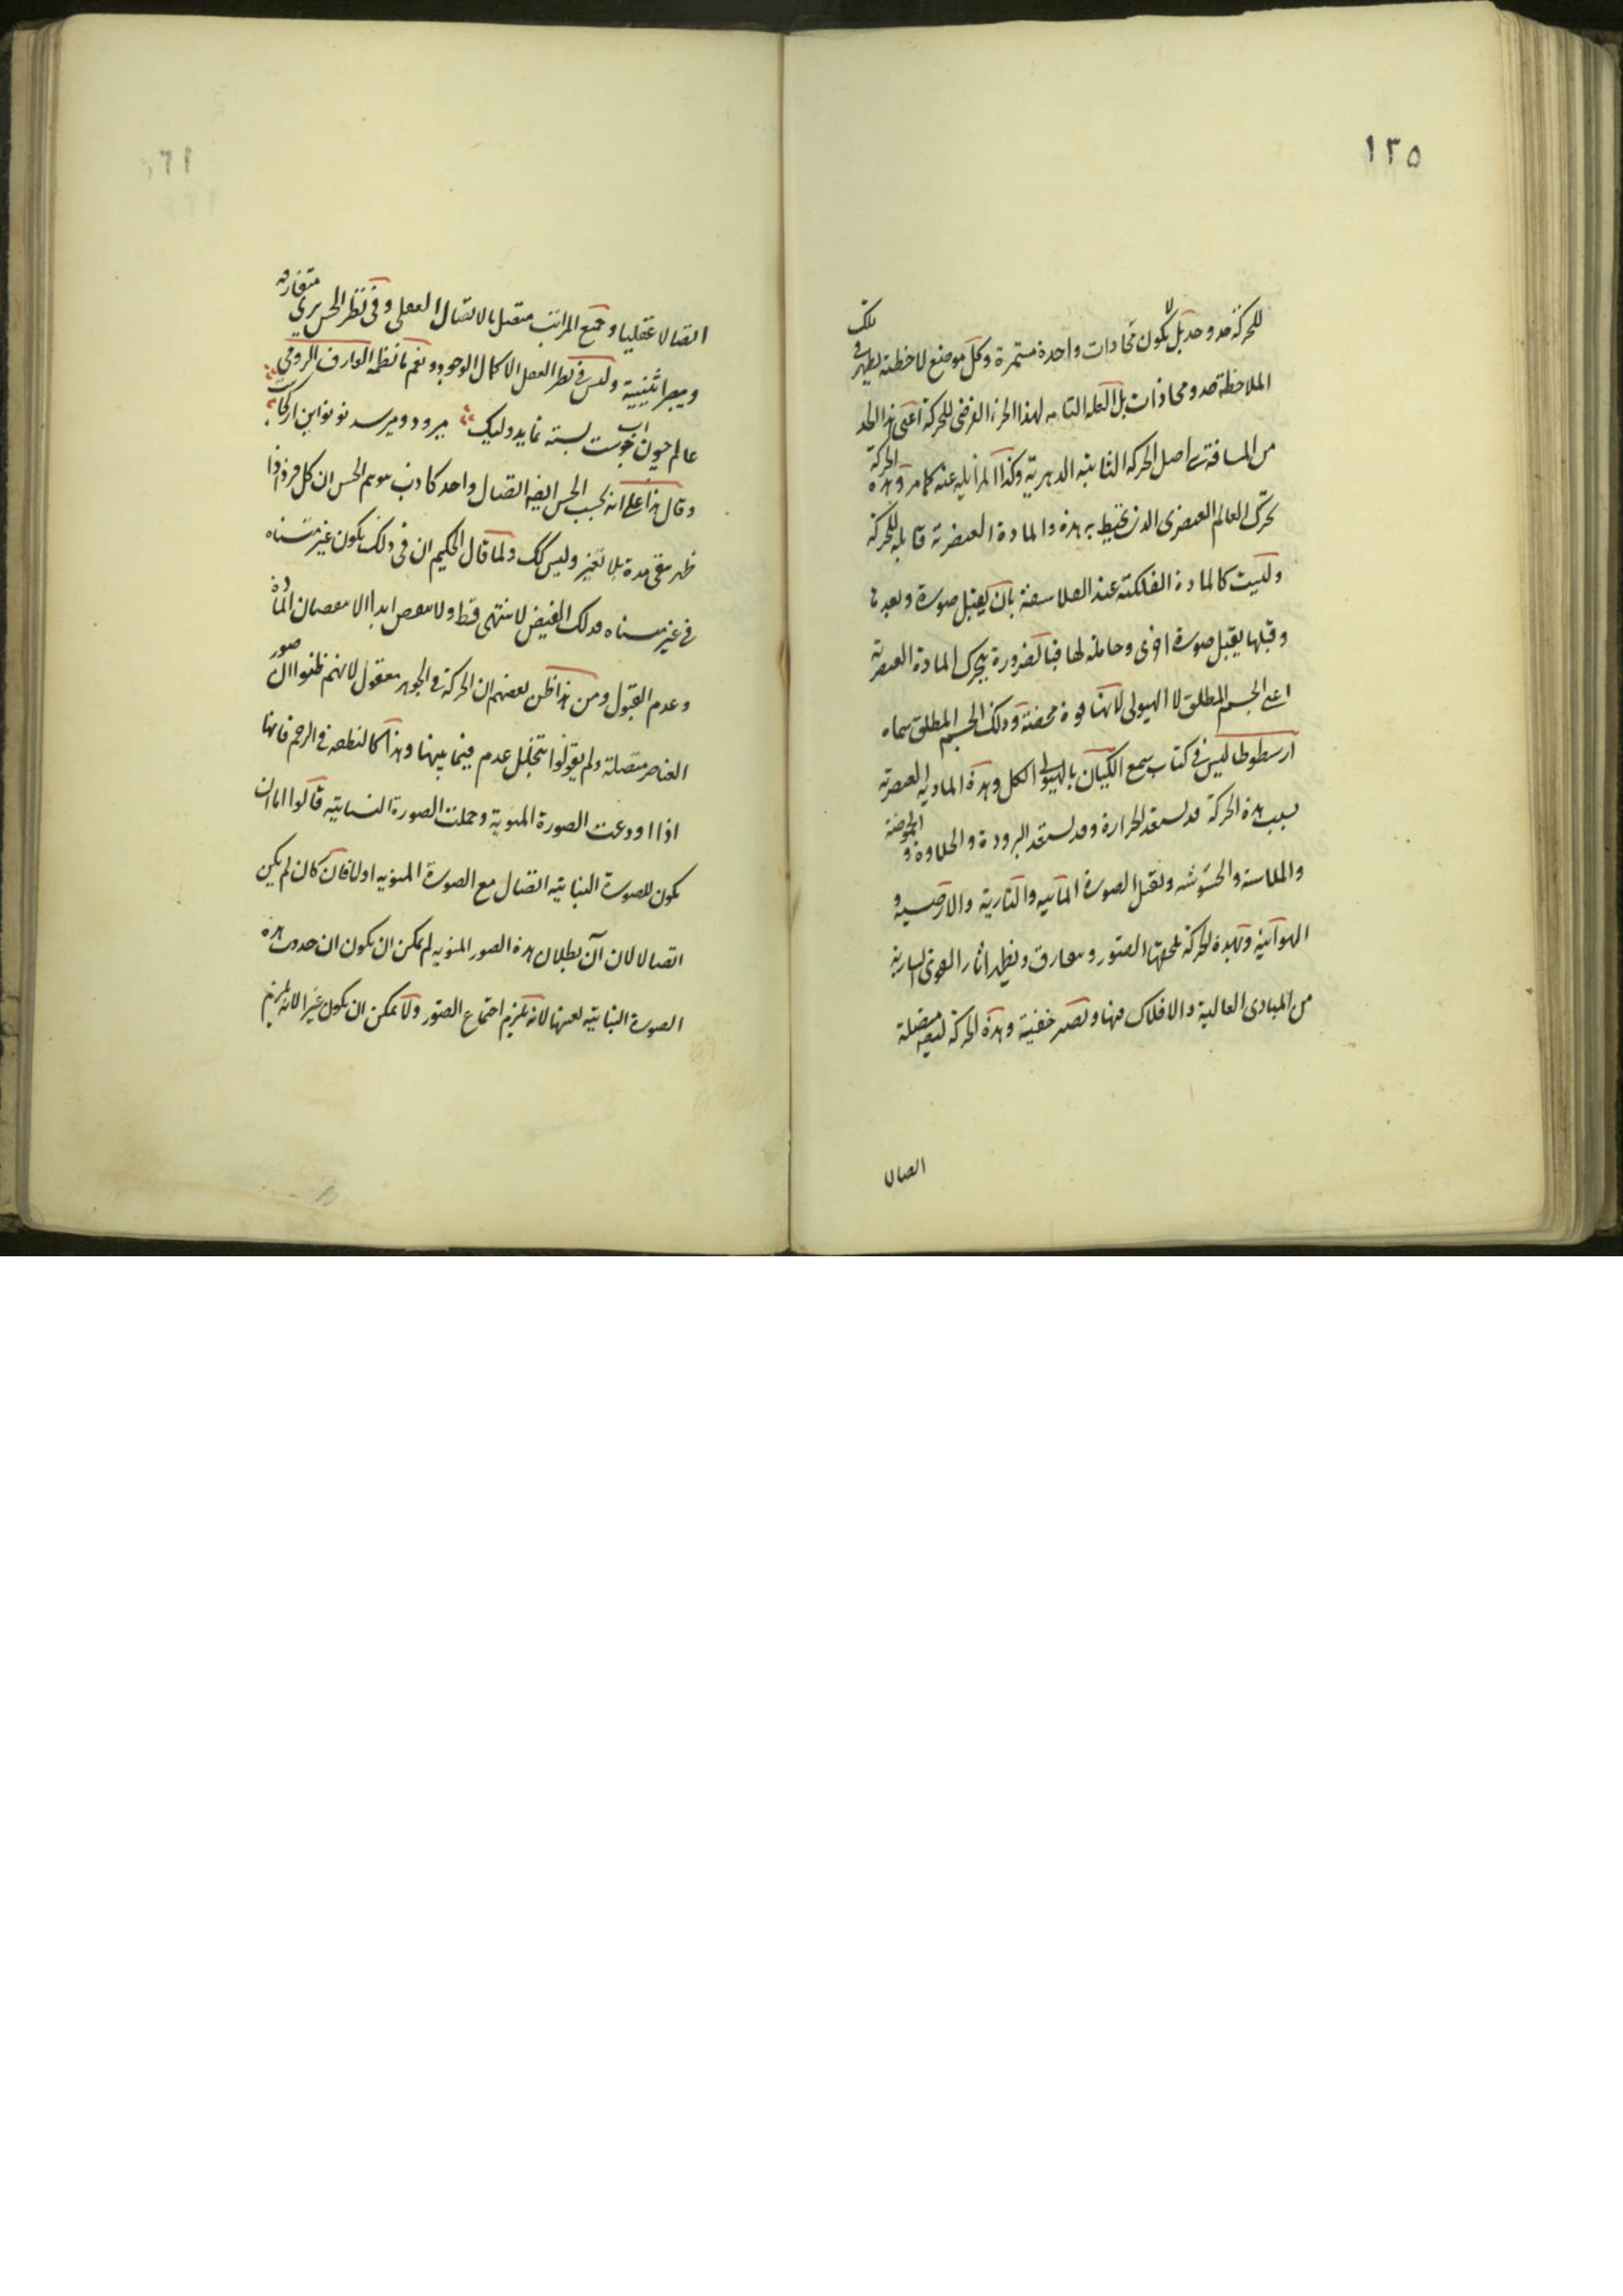 ١٣٥
للحركة حد وحد بل لا يكون محاذات واحدة مستمرة وكل موضع لاحظته يظهر في تلك
الملاحظة حد ومحاذات بل العلة التامة لهذا الجزء الفرضي للحركة اعني هذا الحد
من المسافة اصل الحركة الثابتة الدهرية وكذا المزايلة عنه كما مر وهذه الحركة
تحرك العالم العنصري الذي تحيط به هذه والمادة العنصرية قابلة للحركة
وليست كالمادة الفلكية عند الفلاسفة بان يقبل صورة وبعدها
وقبلها يقبل صورة اخرى وحاملة لها فبالضرورة يتحرك المادة العنصرية
اعني الجسم المطلق لا الهيولى لانها قوة محضة وذلك الجسم المطلق سماه
ارسطوطاليس في كتاب سمع الكيان بالهيولى الكل وهذه المادية العنصرية
بسبب هذه الحركة قد يستعد الحرارة وقد يستعد البرودة والحلاوة والحموضة
والملاسة والخشونة ويقبل الصورة المائية والنارية والارضية و
الهوائية وبهذه الحركة تلحقها الصور وتفارق ويظهر اثار القوى السارية
من المبادى العالية والافلاك فيها وتصير خفية وهذه الحركة متصلة
اتصالا
اتصالا عقليا وجميع المراتب متصل بالاتصال العقلي وفي نظر الحس يرى متفارقة
ويميز اثنينية وليس في نظر العقل الا كمال الوجود ونعم ما نظمه العارف الرومي
عالم چون آب جوست بسته نمايد وليك ميرود وميرسد نو نو اين از كجاست
وقال هذا على انه بحسب الحس ايضا اتصال واحد كاذب يتوهم الحس ان كل فرد اذا
ظهر يبقى مدة بلا تغير وليس كك ولما قال الحكيم ان في ذلك يكون غير متناه
في غير متناه فذلك الفيض لا ينتهى قط ولا ينقص ابدا الا بنقصان المادة
وعدم القبول ومن هذا ظن بعضهم ان الحركة في الجوهر معقول لانهم ظنوا ان صور
العناصر متصلة ولم يقولوا بتخلل عدم فيما بينها وهذا كالنطفة في الرحم فانها
اذا اودعت الصورة المنوية وحملت الصورة النباتية قالوا اما ان
يكون للصورة النباتية اتصال مع الصورة المنوية اولا فان كان لم يكن
اتصالا لان آن بطلان هذه الصور المنوية لم يمكن ان يكون ان حدوث هذه
الصورة النباتية بعينها لانه يلزم اجتماع الصور ولا يمكن ان يكون غير الانه يلزم